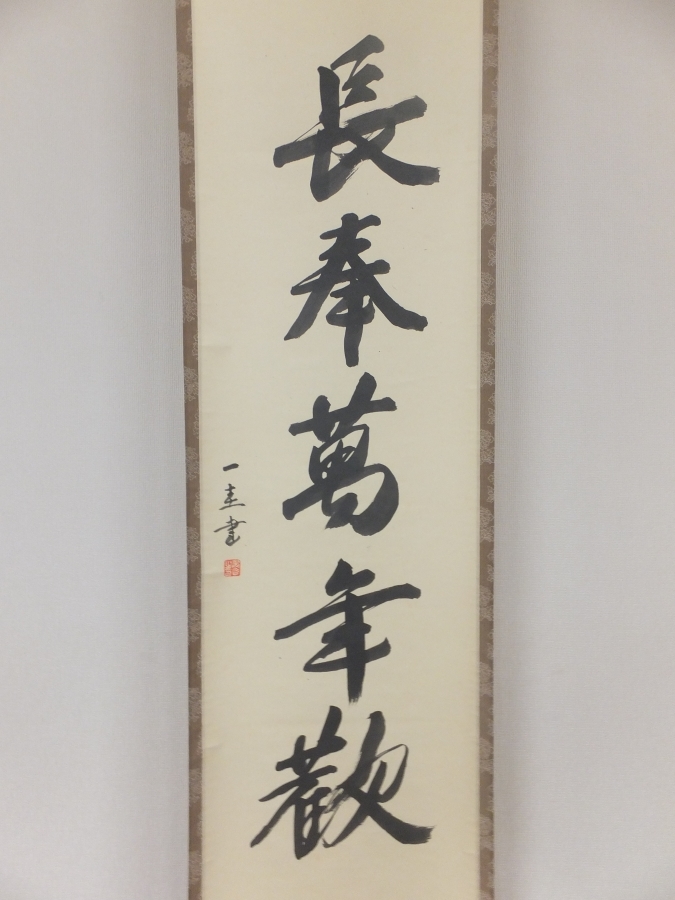 長奉萬年歡
一圭書